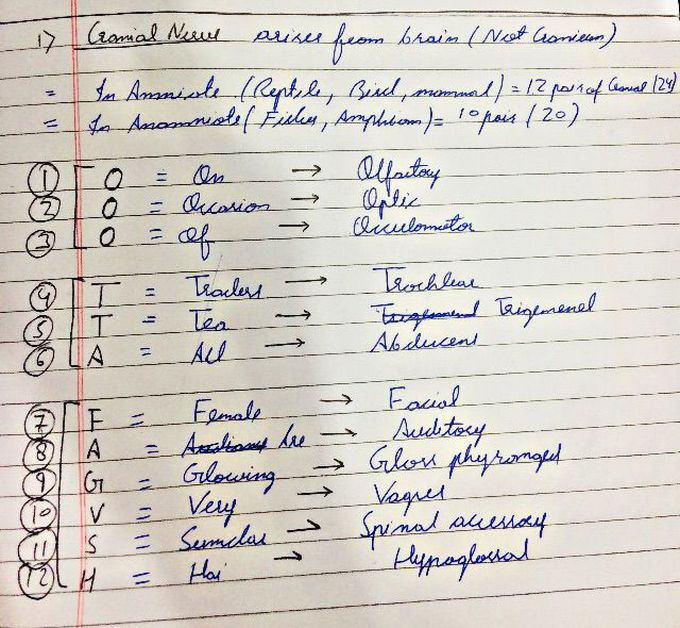 1) Cranial Nerve arises from brain (Not Cranium)
= In Amniote (Reptile, Bird, mammal) = 12 pair of Cranial (24)
= In Anamniote (Fishes, Amphibians) = 10 pair (20)
① O = On → Olfactory
② O = Occasion → Optic
③ O = Of → Occulomotor
④ T = Traders → Trochlear
⑤ T = Tea → Trigemenel
⑥ A = All → Abducens
⑦ F = Female → Facial
⑧ A = Are → Auditory
⑨ G = Glowing → Gloss phyronged
⑩ V = Very → Vagus
⑪ S = → Spinal accessory
⑫ H = Hai → Hypoglossal